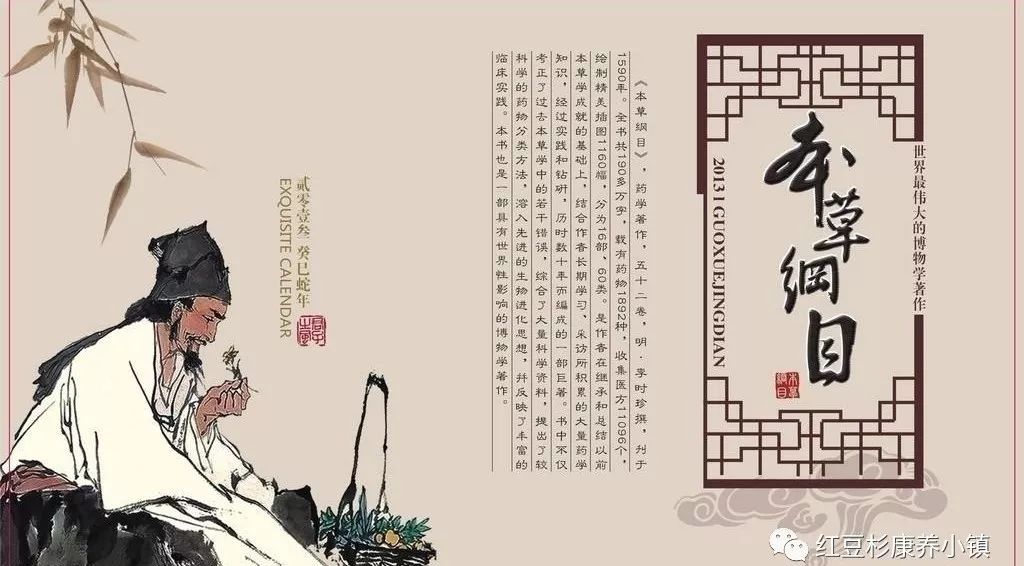 世界最伟大的博物学著作
本草纲目
本草
纲目
2013 1 GUOXUEJINGDIAN
《本草纲目》，药学著作，五十二卷，明·李时珍撰，刊于
1590年。全书共190多万字，载有药物1892种，收集医方11096个，
绘制精美插图1160幅，分为16部、60类。是作者在继承和总结以前
本草学成就的基础上，结合作者长期学习、采访所积累的大量药学
知识，经过实践和钻研，历时数十年而编成的一部巨著。书中不仅
考正了过去本草学中的若干错误，综合了大量科学资料，提出了较
科学的药物分类方法，溶入先进的生物进化思想，并反映了丰富的
临床实践。本书也是一部具有世界性影响的博物学著作。
贰零壹叁 癸巳蛇年
EXQUISITE CALENDAR
红豆杉康养小镇